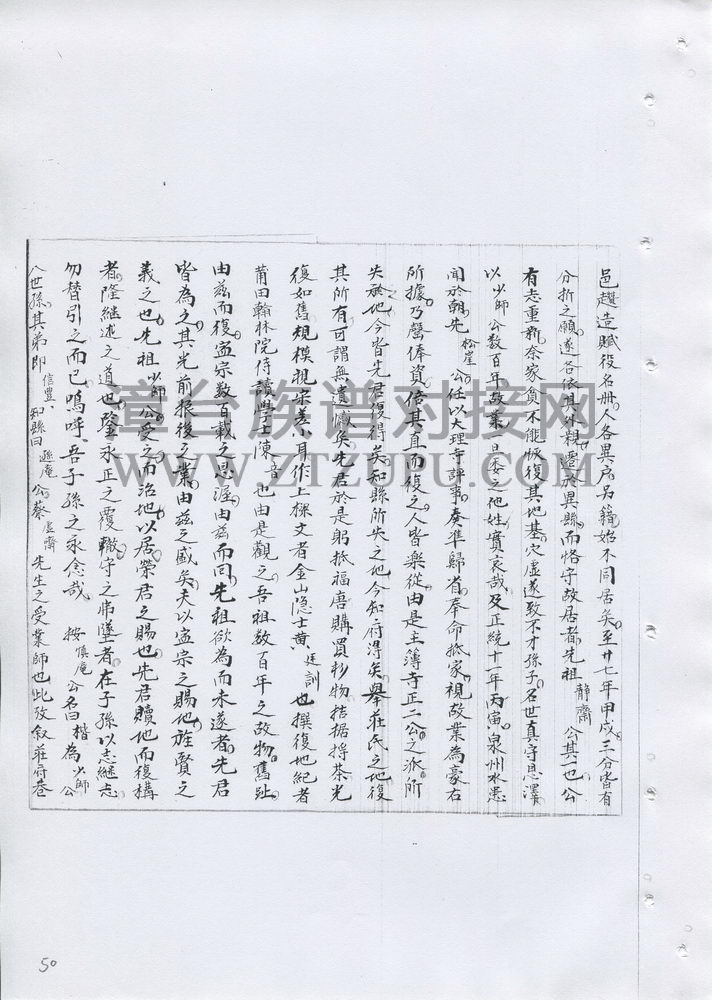 邑趲造賦役名冊人各異戶另籍始不同居矣至廿七年甲戌三分皆有
分折之願遂各依其外親遷於異縣而恪守故居者先祖靜齋公其一也公
有志重新奈家貧不能恢復其地基穴虛遂致不才孫子名世真守恩澤
以少師公數百年故業一旦委之他姓實哀哉及正統十一年丙寅泉州水患
聞於朝先松崖公任以大理寺評事奏準歸省奉命抵家視故業為豪右
所據乃罄俸資倍其直而復之人皆樂從由是主簿寺正二公之派所
失於地今皆先君復得矣知縣所失之地今知府得矣舉莊氏之地復
其所有可謂無遺憾矣先君於是躬抵福唐購買杉物拮据捋荼光
復如舊規模視宋差小耳作上樑文者金山隱士黃廷訓也撰復地紀者
莆田翰林院侍讀學士陳音也由是觀之吾祖數百年之故物舊趾
由茲而復孟宗數百載之恩渥由茲而回先祖欲為而未遂者先君
皆為之其光前振後之業由茲之盛矣夫以孟宗之賜地旌賢之
義之也先祖少師公受之而治地以居榮君之賜也先君贖地而復搆
者隆繼述之道也鑒永正之覆轍守之弗墜者在子孫以志繼志
勿替引之而已嗚呼吾子孫之永念哉 按慎庵公名楷為少師公
八世孫其弟即信豐知縣曰遜庵公蔡虛齋先生之受業師也此攷叙莊府巷
漳台族谱对接网
WWW.ZTZUPU.COM
50